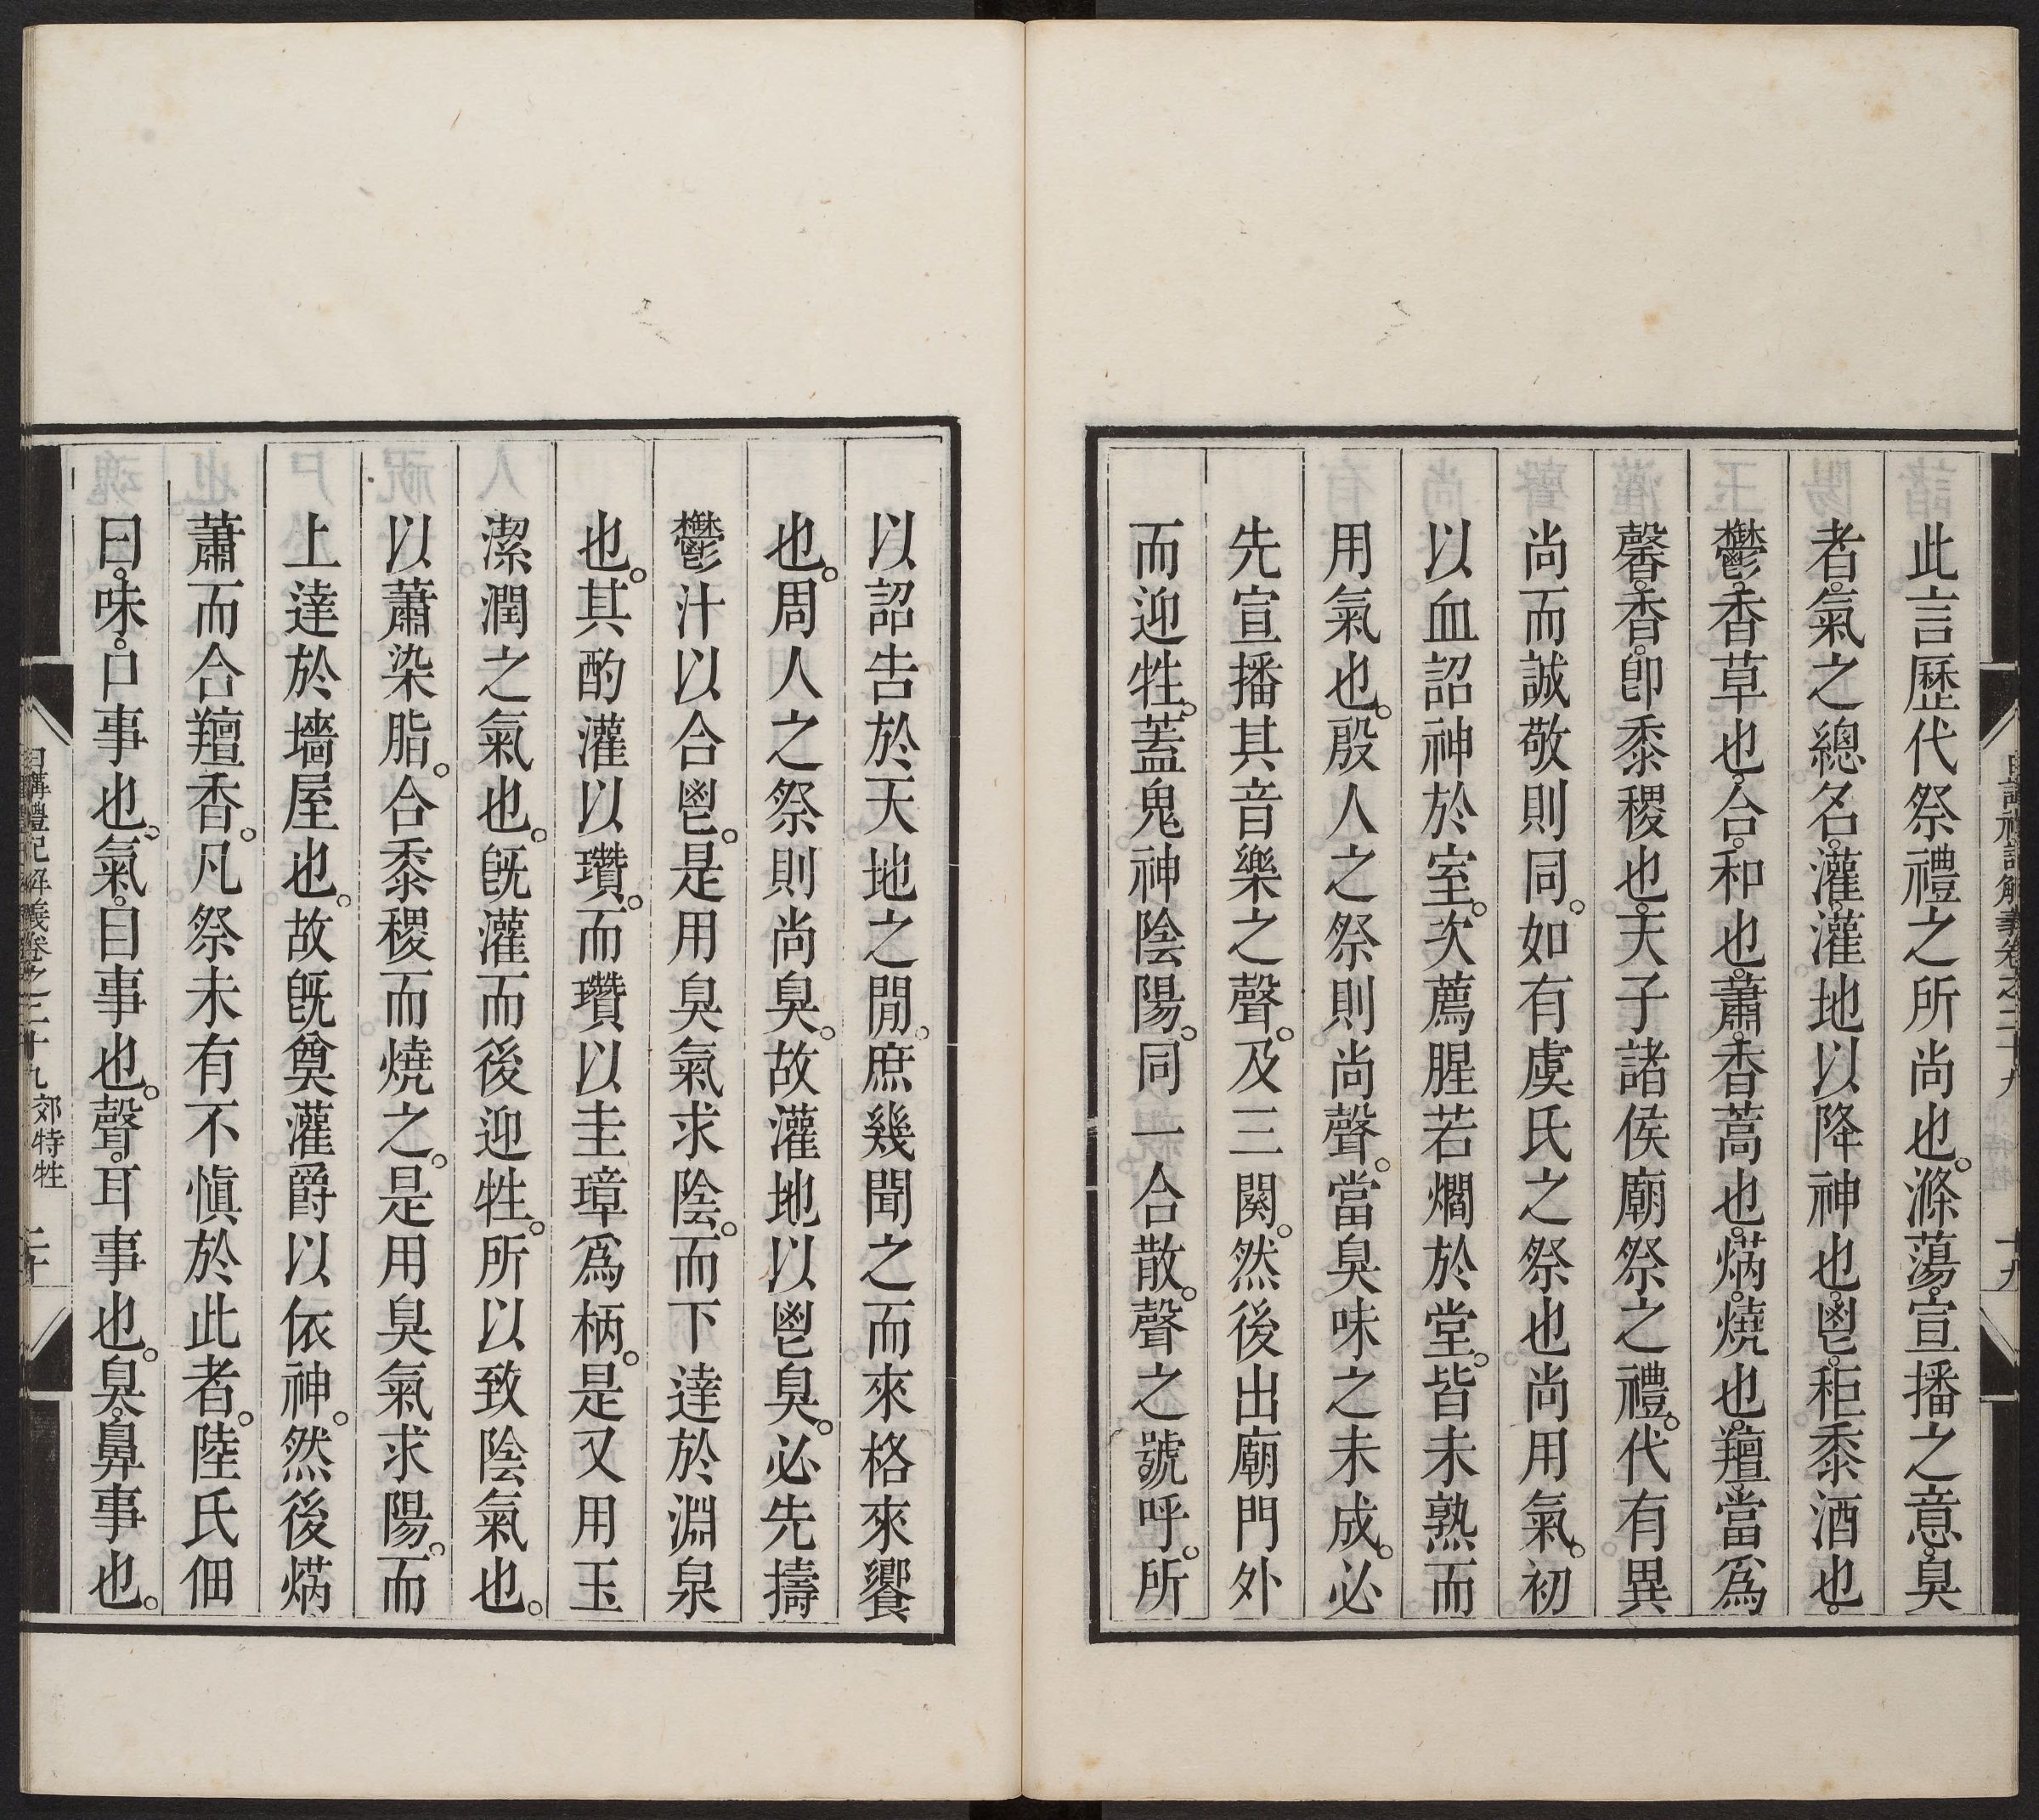 此言歷代祭禮之所尚也。滌蕩。宣播之意。臭
者。氣之總名。灌。灌地以降神也。鬯。秬黍酒也。
鬱。香草也。合。和也。蕭。香蒿也。焫。燒也。羶。當爲
馨。香。卽黍稷也。天子諸侯廟祭之禮。代有異
尚而誠敬則同。如有虞氏之祭也尚用氣。初
以血詔神於室。次薦腥若爓於堂。皆未熟而
用氣也。殷人之祭則尚聲。當臭味之未成。必
先宣播其音樂之聲。及三闋。然後出廟門外
而迎牲。蓋鬼神陰陽。同一合散。聲之號呼。所
日講禮記解義卷之二十九 十九
以詔告於天地之閒。庶幾聞之而來格來饗
也。周人之祭則尚臭。故灌地以鬯臭。必先擣
鬱汁以合鬯。是用臭氣求陰。而下達於淵泉
也。其酌灌以瓚。而瓚以圭璋爲柄。是又用玉
潔潤之氣也。旣灌而後迎牲。所以致陰氣也。
以蕭染脂。合黍稷而燒之。是用臭氣求陽。而
上達於墻屋也。故旣奠灌爵以依神。然後焫
蕭而合羶香。凡祭未有不愼於此者。陸氏佃
曰。味。口事也。氣。目事也。聲。耳事也。臭。鼻事也。
日講禮記解義卷之二十九 郊特牲 二十